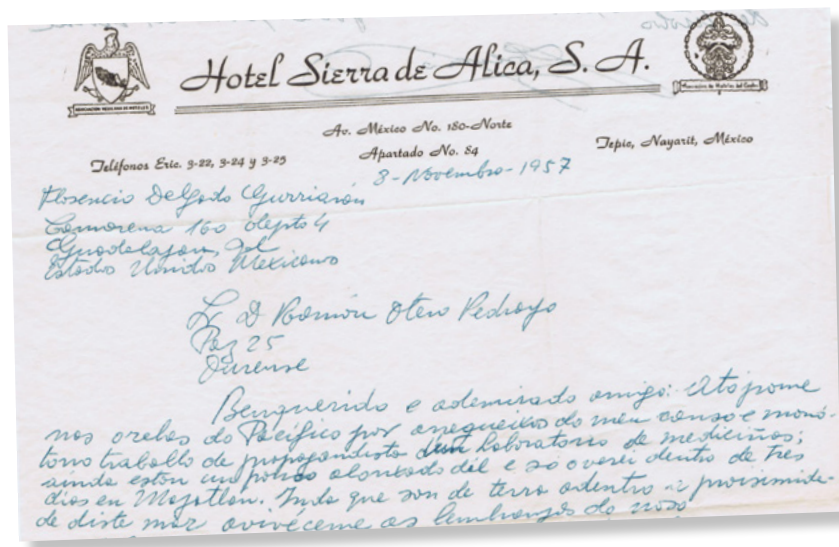 Hotel Sierra de Alica, S. A.
ASOCIACION MEXICANA DE HOTELES
Av. México No. 180-Norte
Teléfonos Eric. 3-22, 3-24 y 3-25
Apartado No. 84
Tepic, Nayarit, México
8-Novembro-1957
Florencio Delgado Gurriarán
Camarena 160 depto 4
Guadalajara, Jal
Estados Unidos Mexicanos
Sr D Ramón Otero Pedrayo
Paz 25
Ourense
Benquerido e ademirado amigo: Atópome
nas orelas do Pacífico por do meu canso e monó-
tono traballo de propagandista dun laboratorio de mediciñas;
ainda estou un pouco alonxado dél e só o verei dentro de tres
días en Mazatlán. Inda que son de terra adentro a proisimida-
de diste mar avivéceme as lembranzas do noso